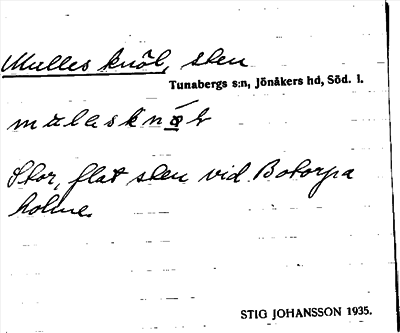 Mulles knöl, sten
Tunabergs s:n, Jönåkers hd, Söd. l.
Stor, flat sten vid Botorpa
holme.
STIG JOHANSSON 1935.